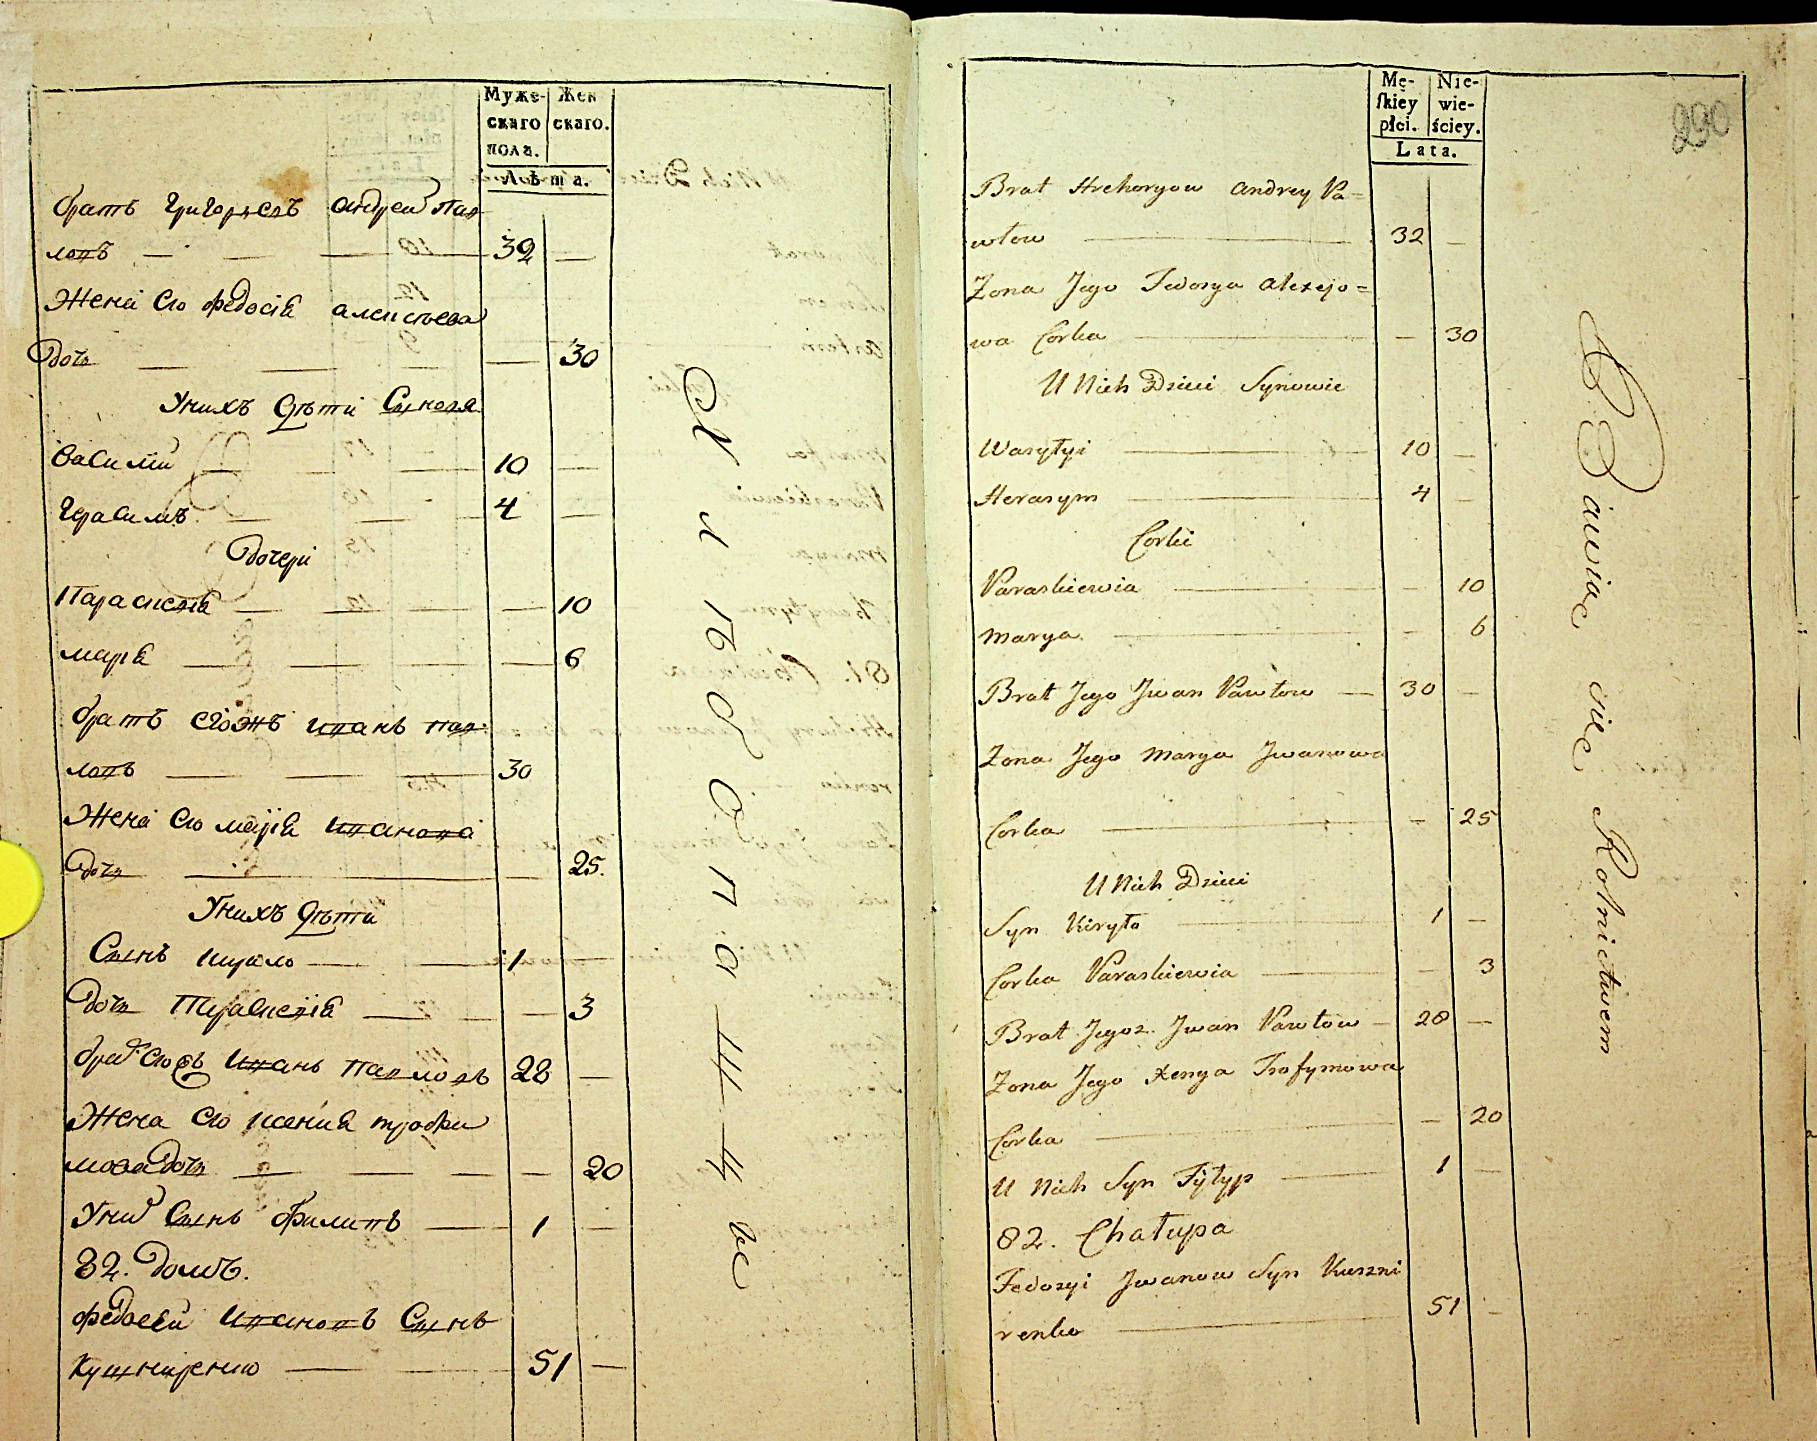 Муже-
скаго
пола.
Жен
скаго.
Лѣта.
братъ Григорьевъ андрей пав
ловъ 32 —
Жена его федосія алексѣева
дочь — 30
У нихъ дѣти Сыновя
василій 10 —
Герасимъ 4 —
дочери
Параскевія — 10
марія — 6
братъ егожъ иванъ пав
ловъ 30
Жена его марія иванова
дочь — 25.
У нихъ дѣти
Сынъ кирило 1 —
дочь Параскевія — 3
братъ его 2ъ иванъ павловъ 28 —
Жена его ксенія трофи
мова дочь — 20
У них Сынъ филипъ 1 —
82. домъ.
федосей ивановъ Сынъ
кушниренко 51 —
Mę-
ſkiey
płci.
Nie-
wie-
ściey.
Lata.
290
Brat Hrehoryow Andrey Pa=
włow 32 —
Zona Jego Fedosya Alexejo=
wa Corka — 30
U Nich Dzieci Synowie
Wasyłyi 10 —
Herasym 4 —
Corki
Paraskiewia — 10
Marya — 6
Brat Jego Jwan Pawłow 30 —
Zona Jego Marya Jwanowa
Corka — 25
U Nich Dzieci
Syn Kiryło 1 —
Corka Paraskiewia — 3
Brat Jego 2. Jwan Pawłow 28 —
Zona Jego Xenya Trofymowa
Corka — 20
U Nich Syn Fyłyp 1 —
82. Chałupa
Fedosyi Jwanow Syn Kuszni
renko 51 —
Bawiąc się Rolnictwem